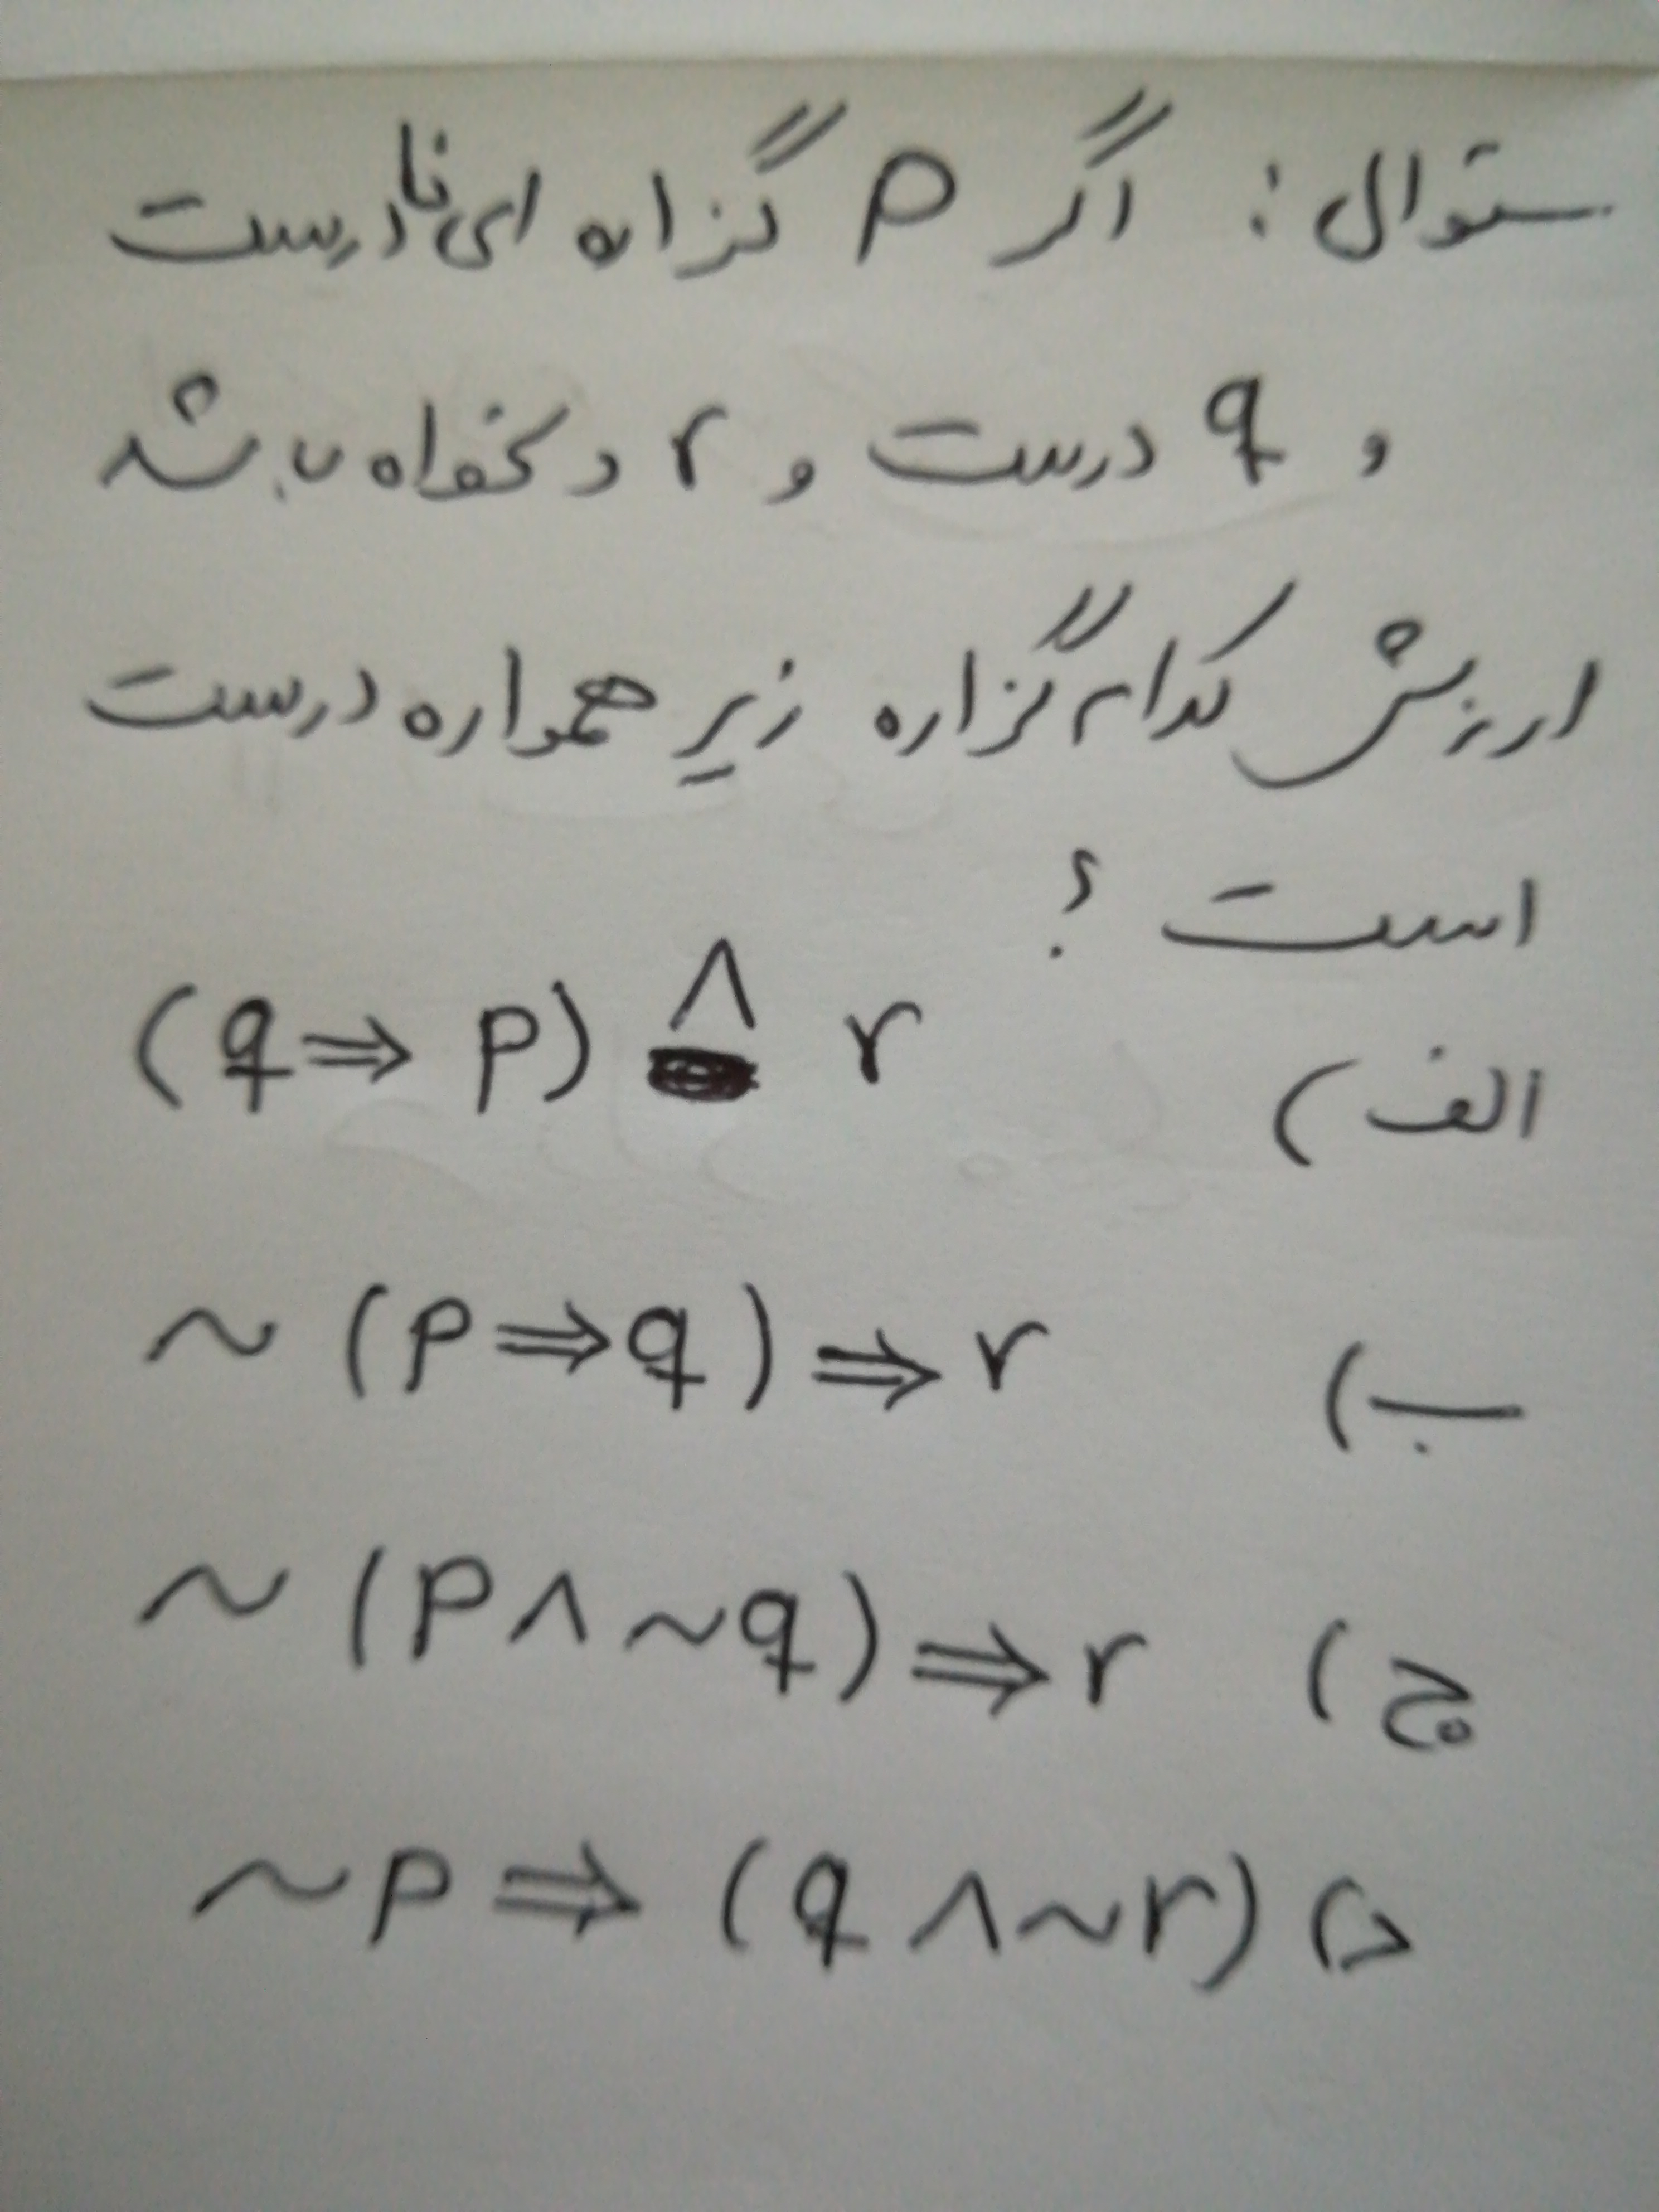 سئوال : اگر p گزاره ای نادرست
و q درست و r دلخواه باشد
ارزش کدام گزاره زیر همواره درست
است ؟
الف) (q ⇒ p) ∧ r
ب) ~ (p ⇒ q) ⇒ r
ج) ~ (p ∧ ~q) ⇒ r
د) ~p ⇒ (q ∧ ~r)